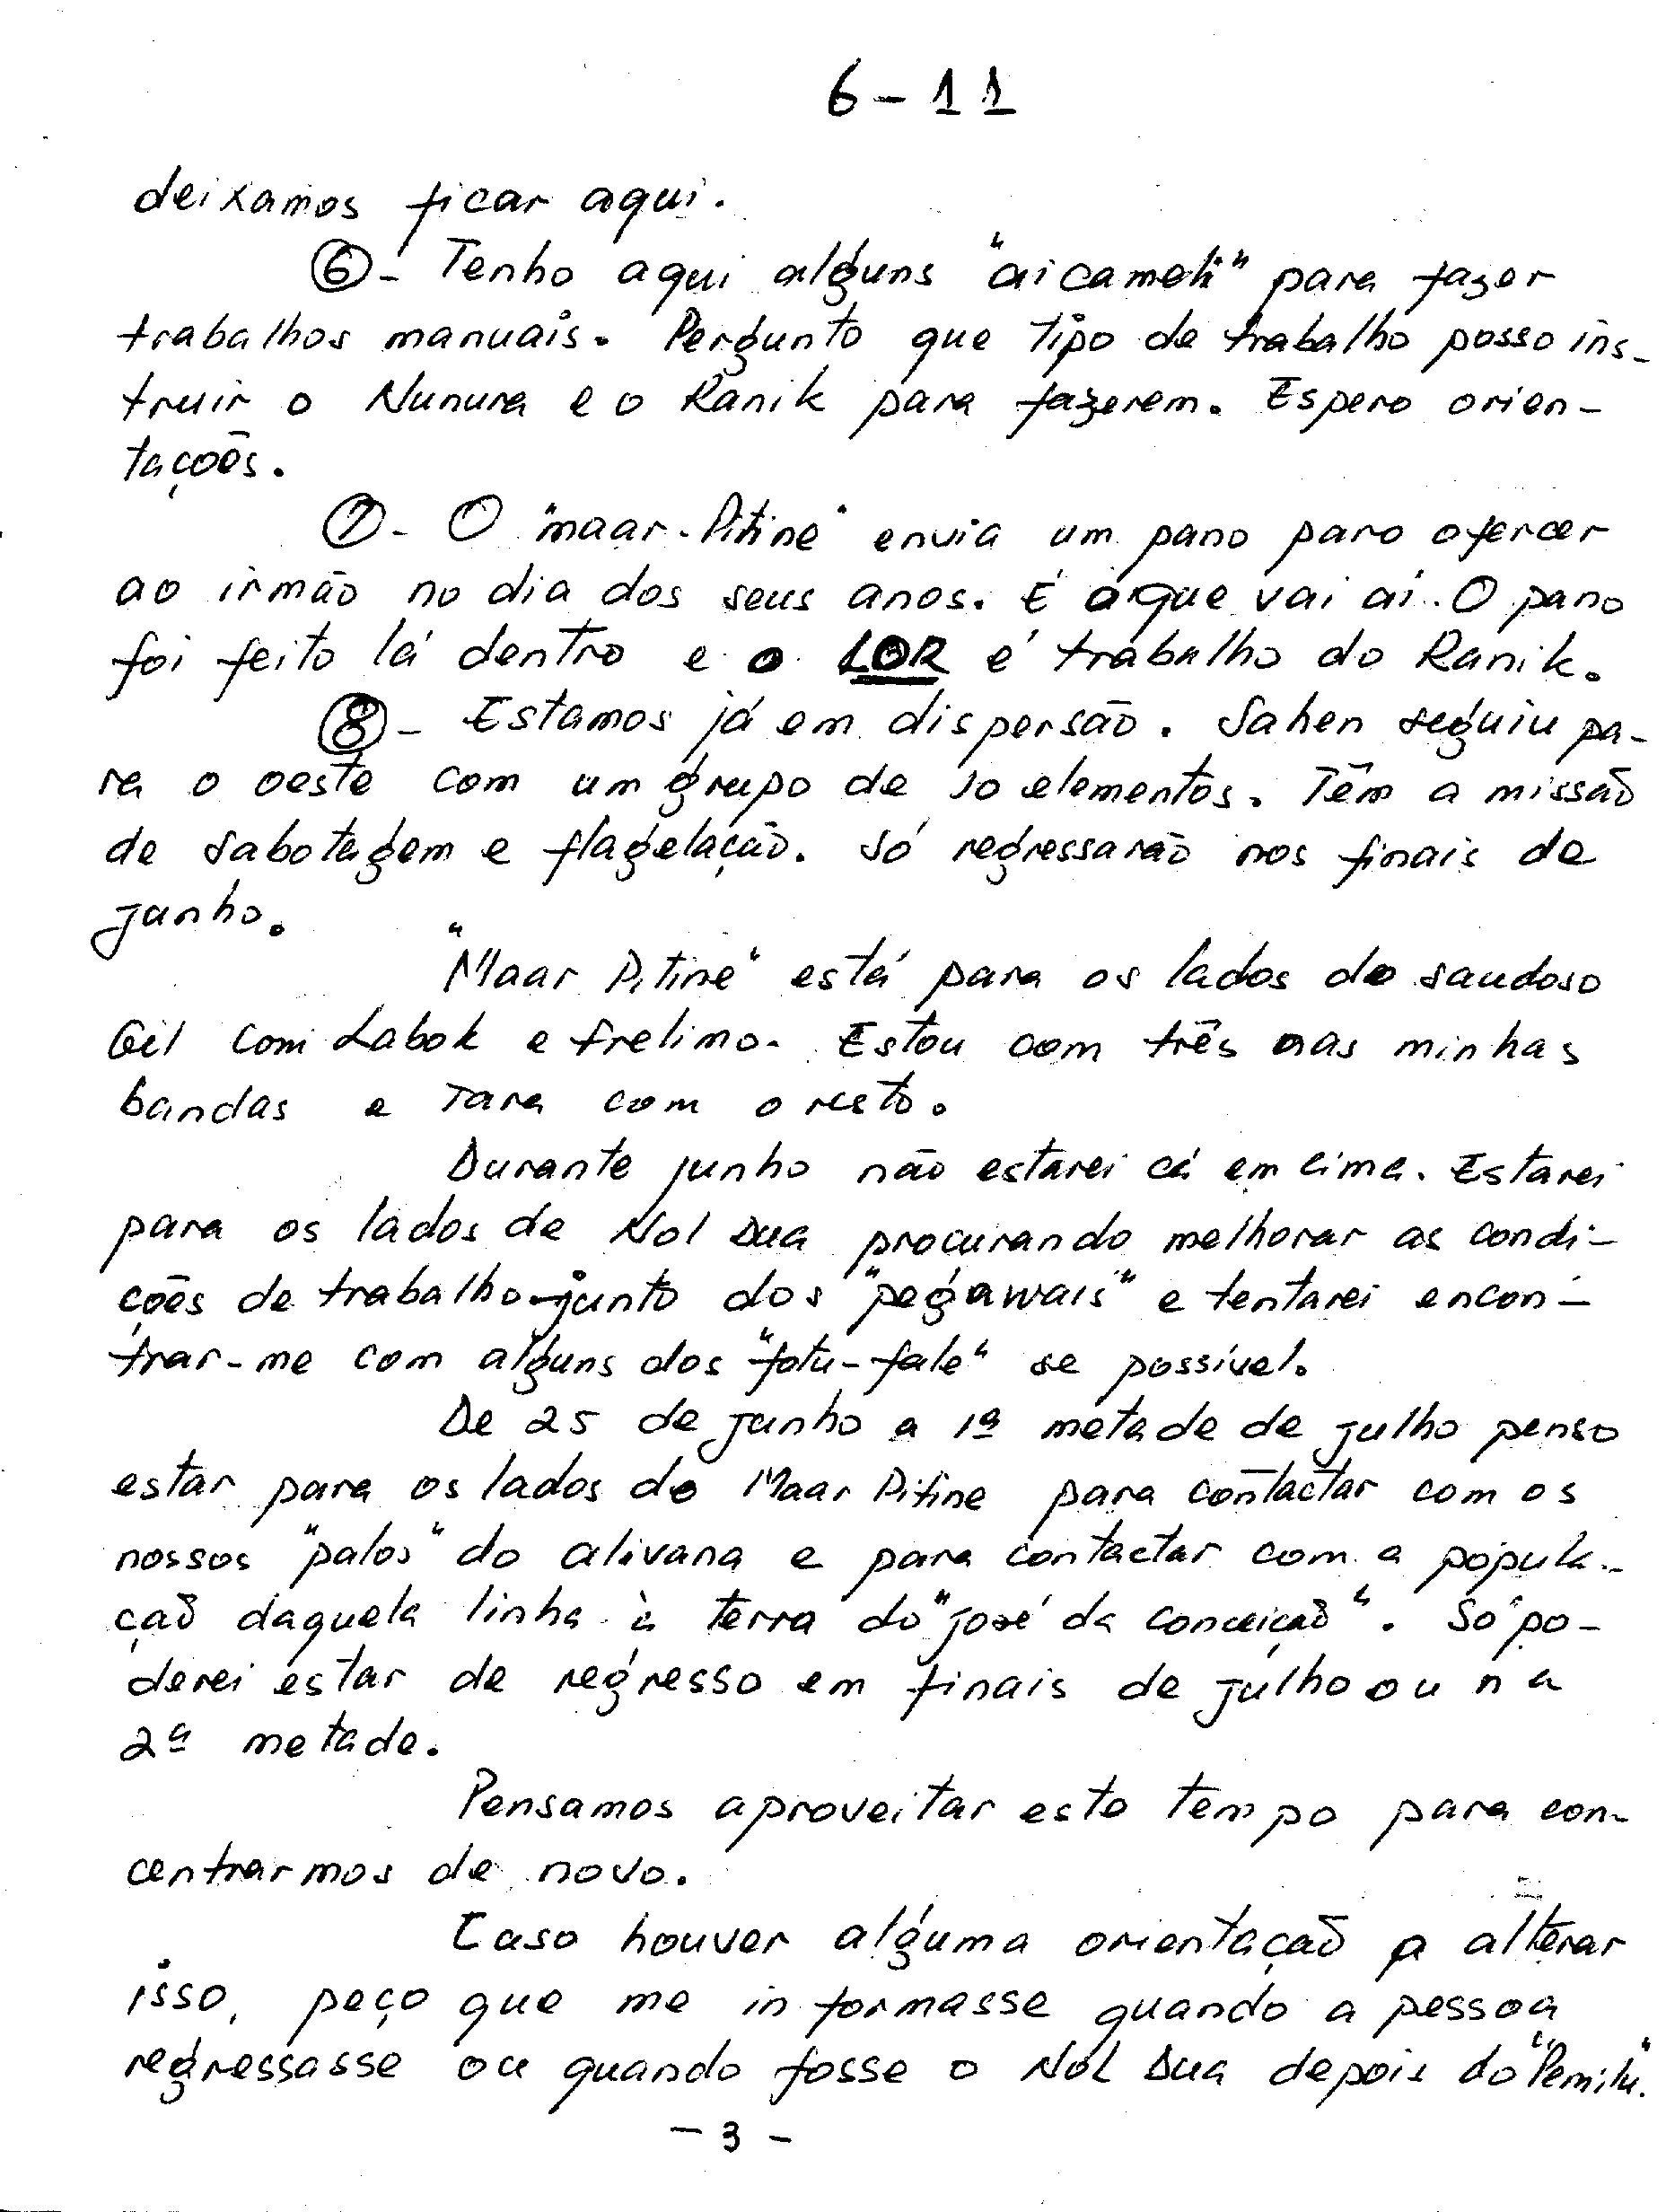 6-11
deixamos ficar aqui.
⑥- Tenho aqui alguns "aicameli" para fazer
trabalhos manuais. Pergunto que tipo de trabalho posso ins-
truir o Nunura e o Ranik para fazerem. Espero orien-
tações.
⑦- O "maar-Pitine" envia um pano para ofercer
ao irmão no dia dos seus anos. É o que vai aí. O pano
foi feito lá dentro e o LOR é trabalho do Ranik.
⑧- Estamos já em dispersão. Sahen seguiu pa-
ra o oeste com um grupo de 10 elementos. Têm a missão
de sabotagem e flagelação. Só regressarão nos finais de
junho.
"Maar Pitine" está para os lados do saudoso
Gil com Labok e frelimo. Estou com três nas minhas
bandas e Tara com o resto.
Durante junho não estarei cá em cima. Estarei
para os lados de Nol Dua procurando melhorar as condi-
ções de trabalho junto dos "pegawais" e tentarei encon-
trar-me com alguns dos "fotu-fale" se possível.
De 25 de junho a 1ª metade de julho penso
estar para os lados do Maar Pitine para contactar com os
nossos "palos" do alivana e para contactar com a popula-
ção daquela linha à terra do "josé da conceição". Só po-
derei estar de regresso em finais de julho ou na
2ª metade.
Pensamos aproveitar este tempo para con-
centrarmos de novo.
Caso houver alguma orientação a alterar
isso, peço que me informasse quando a pessoa
regressasse ou quando fosse o Nol Dua depois do "Pemilu".
- 3 -